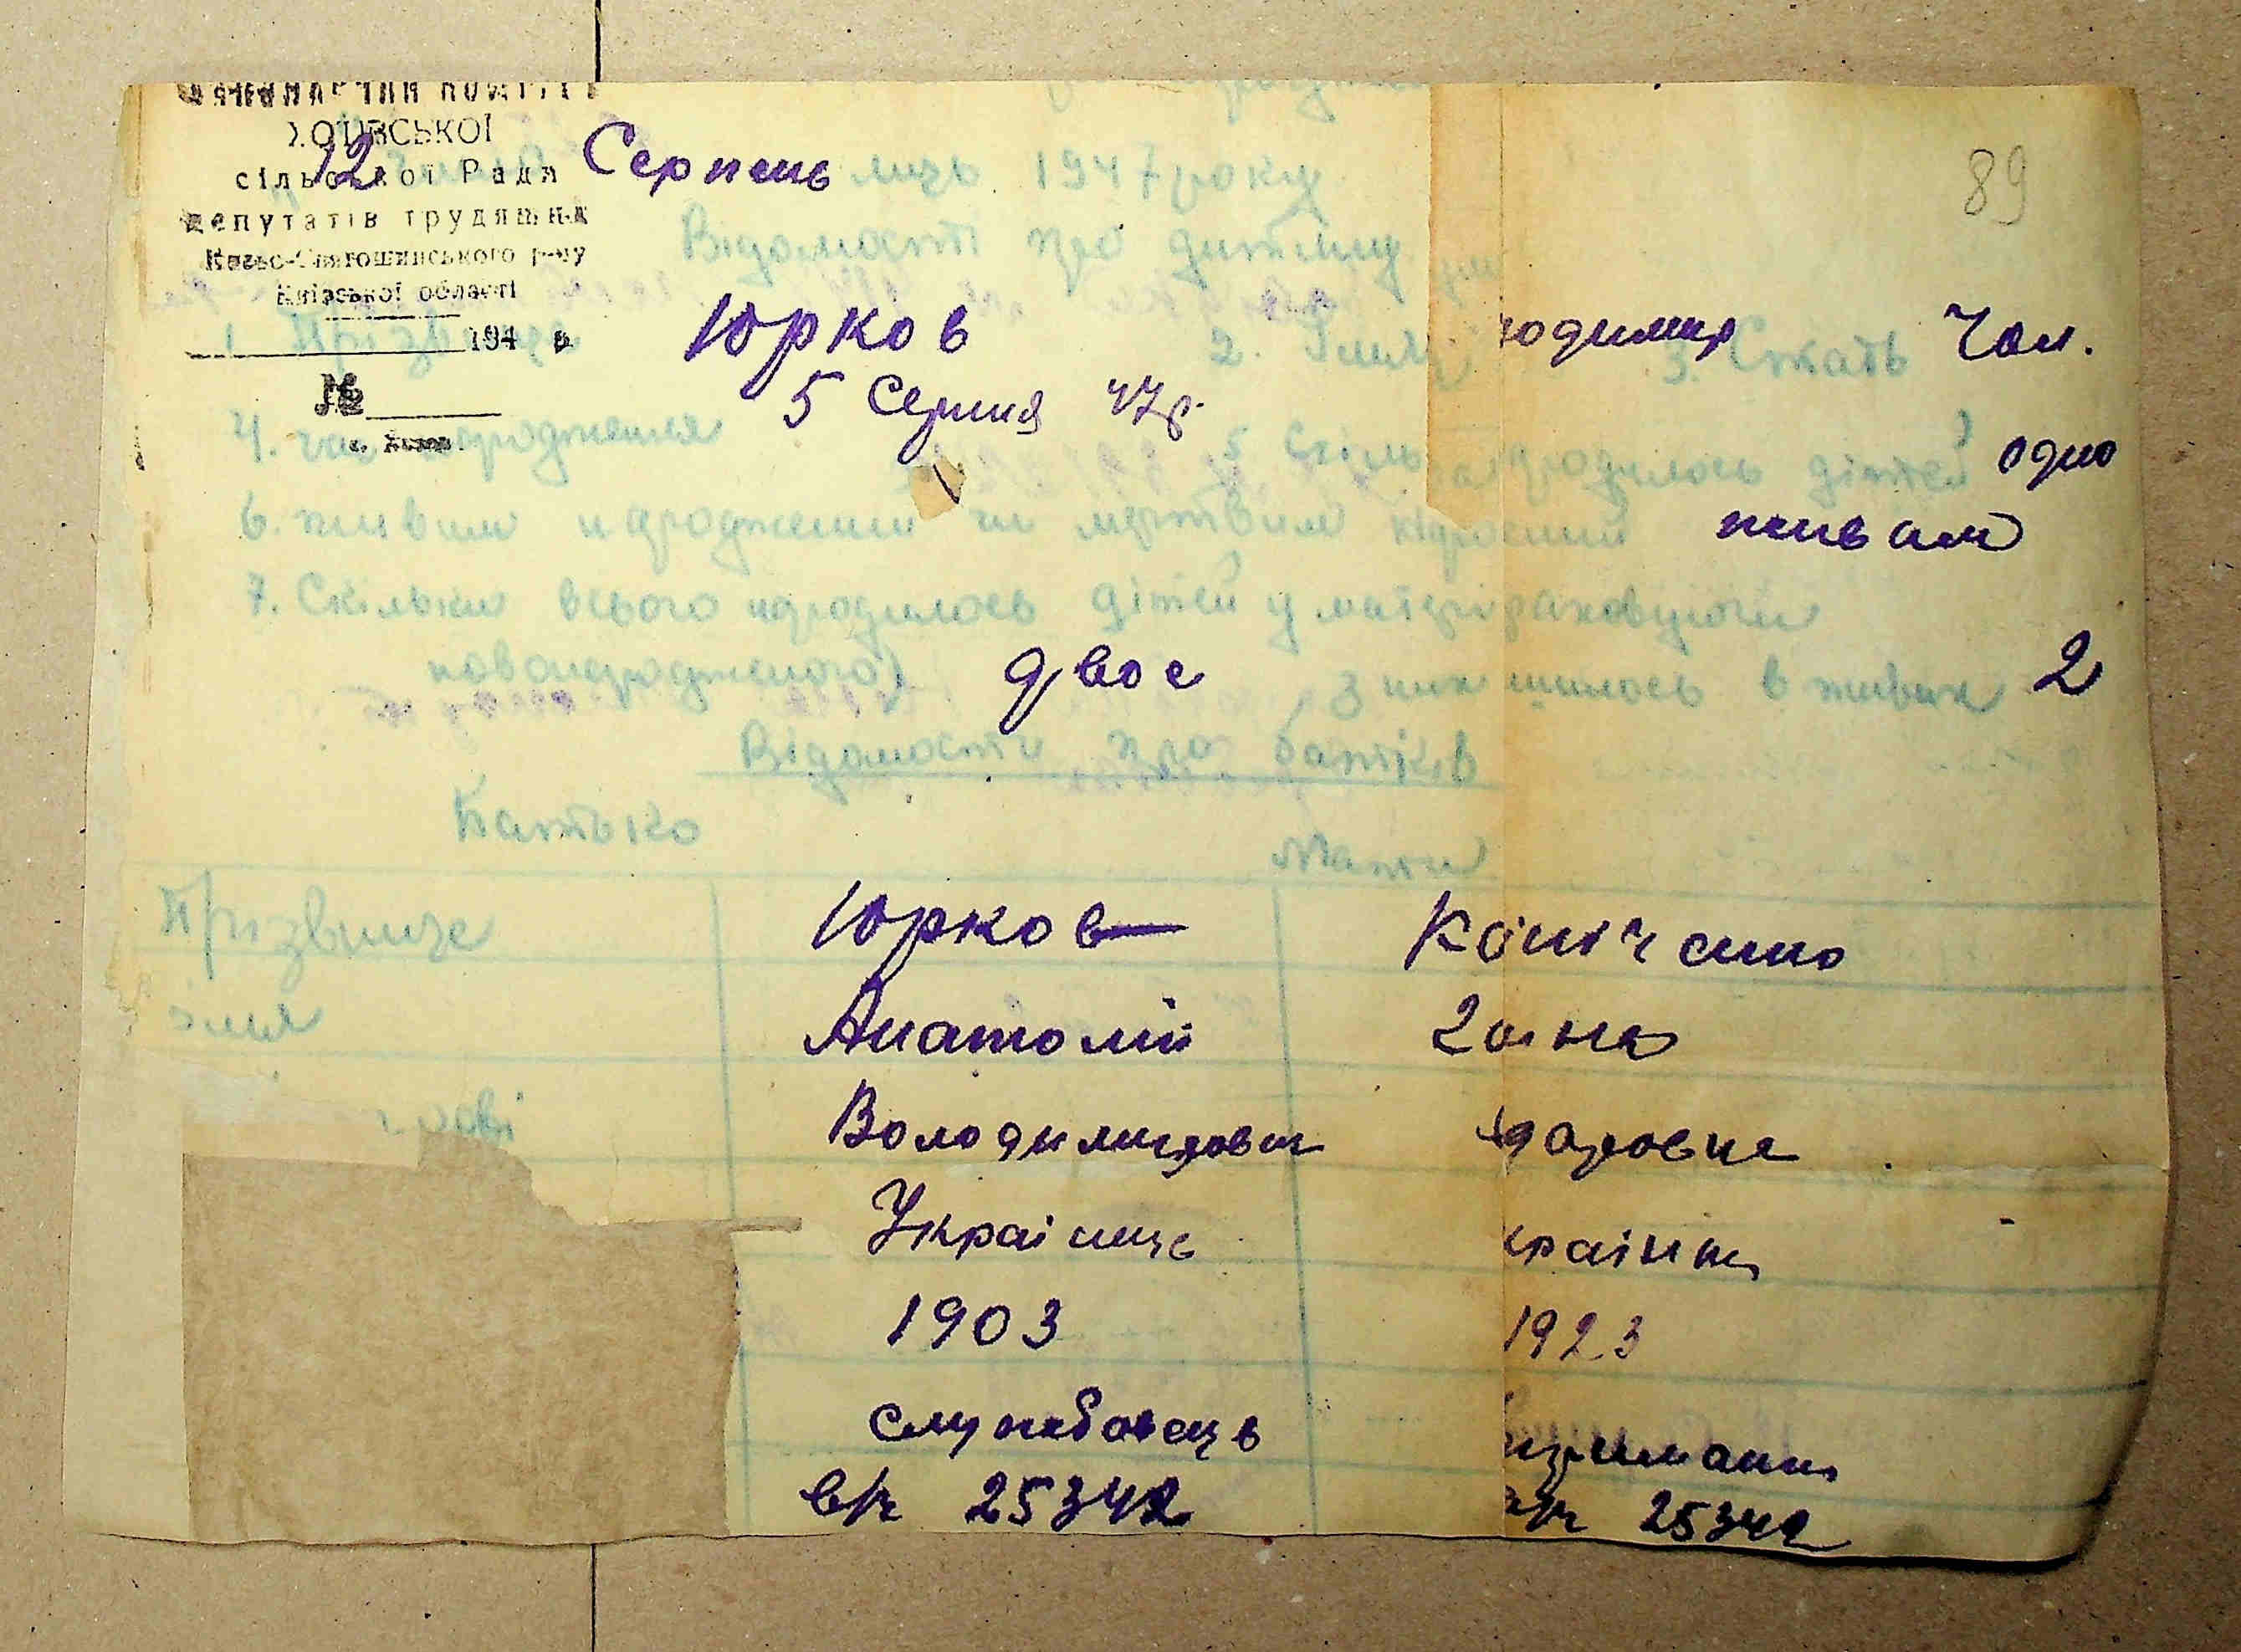 ХОТІВСЬКОЇ
сільської Ради
депутатів трудящих
Києво-Святошинського р-ну
Київської області
194 р.
№
12 Серпень місць 1947 року
89
Відомості про дитину
1. Прізвище Юрков 2. Імя одимир 3. Стать Чол.
4. час народження 5 Серпня 47р. 5 Скільки народилось дітей одно
6. живим народжений чи мертвим живим
7. Скільки всього народилось дітей у матері раховуючи
новонародженого) двоє з них лишилось в живих 2
Відомости про батьків
Батько Мати
Прізвище Юрков
імя Анатолій
Володимирович
Українець країнка
1903 1923
службовець
в/ч 25342 25342